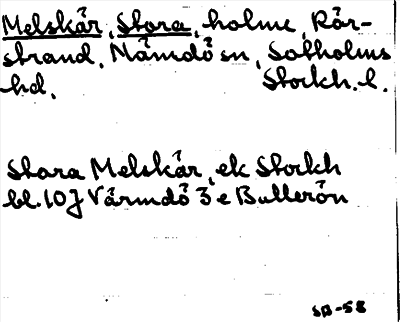 Melskär, Stora, holme, Rår-
strand, Nämdö sn, Sotholms
hd. Stockh. l.
Stora Melskär, ek Stockh
bl. 10J Värmdö 3 e Bullerön
SB-58